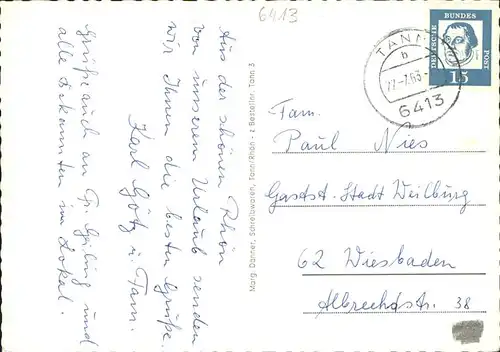 6413
Aus der schönen Rhön
von unserem Urlaub senden
wir Ihnen die besten Grüße
Karl Götz u. Fam.
Grüße auch an Fr. und
alle Bekannten im Lokal.
Marg. Danner, Schreibwaren, Tann/Rhön - z Besteller: Tann 3
TANN
b
6413
DEUTSCHE
BUNDES
POST
15
Fam.
Paul Nies
Gastst. Stadt Weilburg
62 Wiesbaden
Albrechtstr. 38